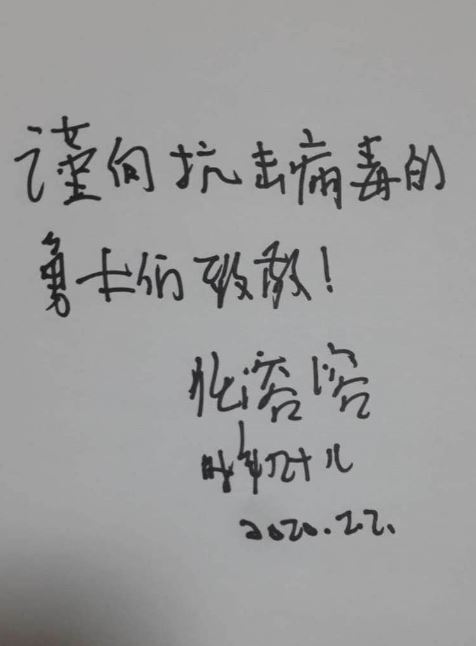 谨向抗击病毒的
勇士们致敬!
任溶溶
时年九十八
2020.2.2.